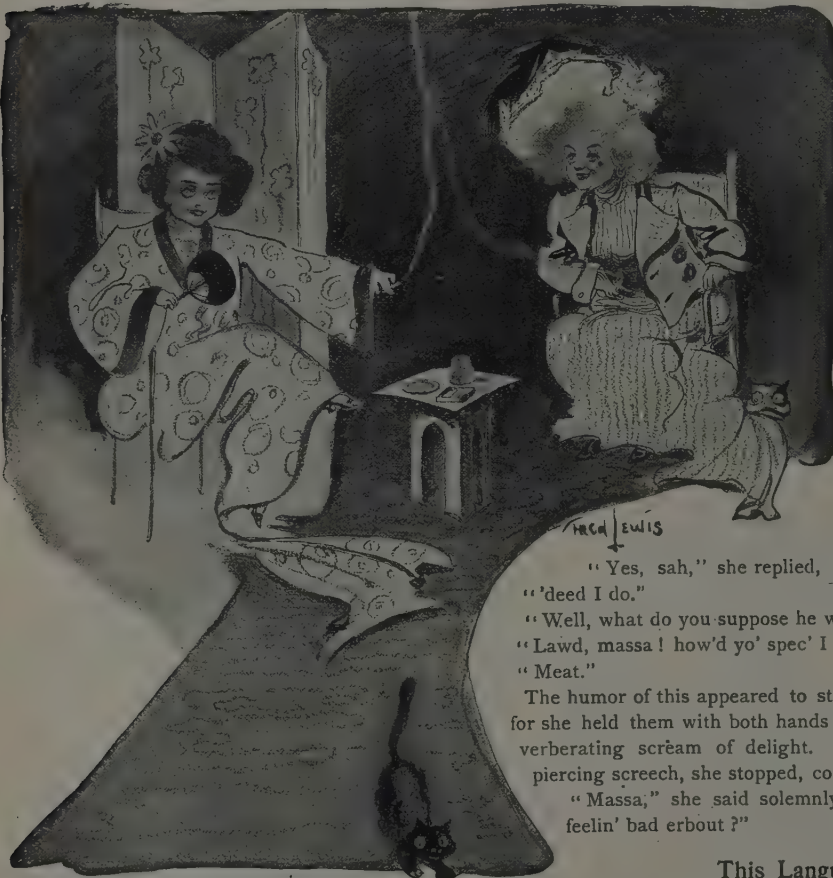 Fred Lewis
"Yes, sah," she replied,
"'deed I do."
"Well, what do you suppose he
"Lawd, massa! how'd yo' spec' I
"Meat."
The humor of this appeared to
for she held them with both hands
verberating scream of delight.
piercing screech, she stopped,
"Massa," she said solemnly
feelin' bad erbout?"
This